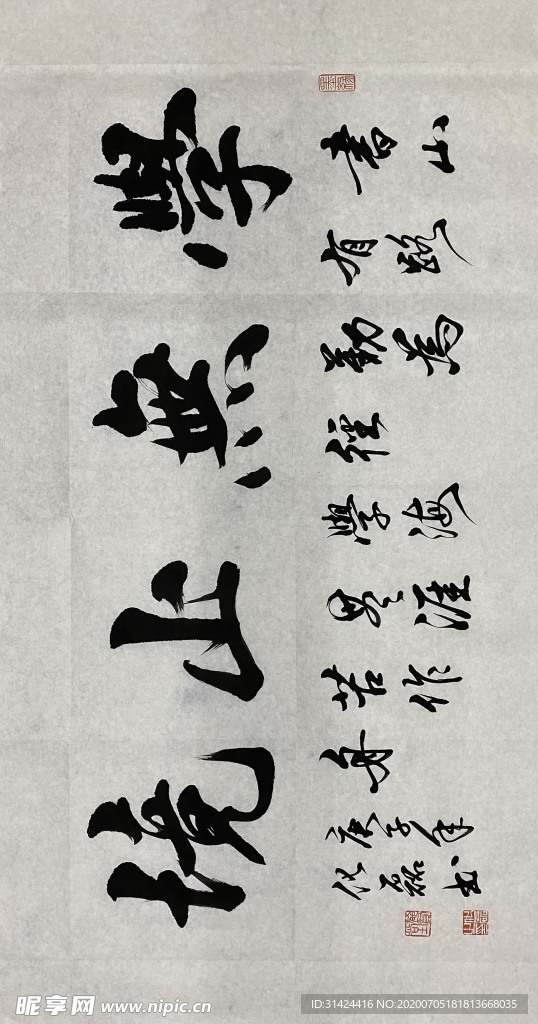 學無止境
書山
有路
勤為
徑
學海
無涯
苦作
舟
庚子年
書
昵享网 www.nipic.cn
ID:31424416 NO:20200705181813668035